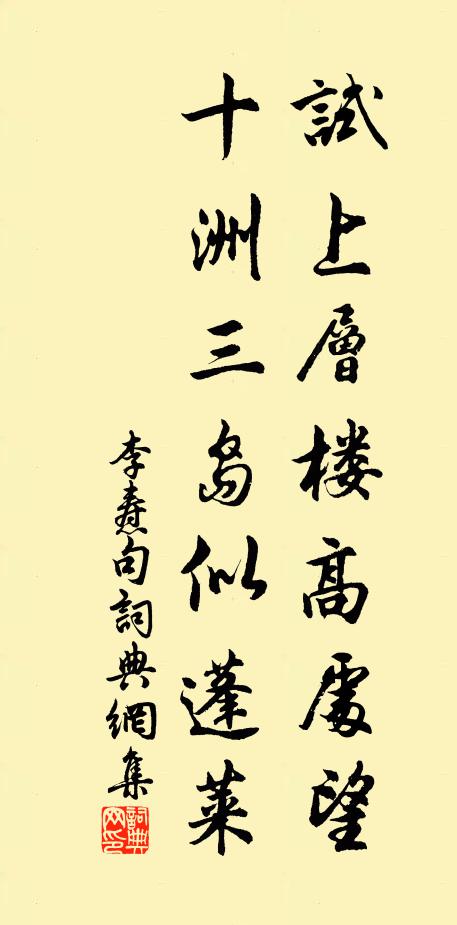 試上層楼高處望
十洲三島似蓬萊
李焘句詞典網集
詞典网印